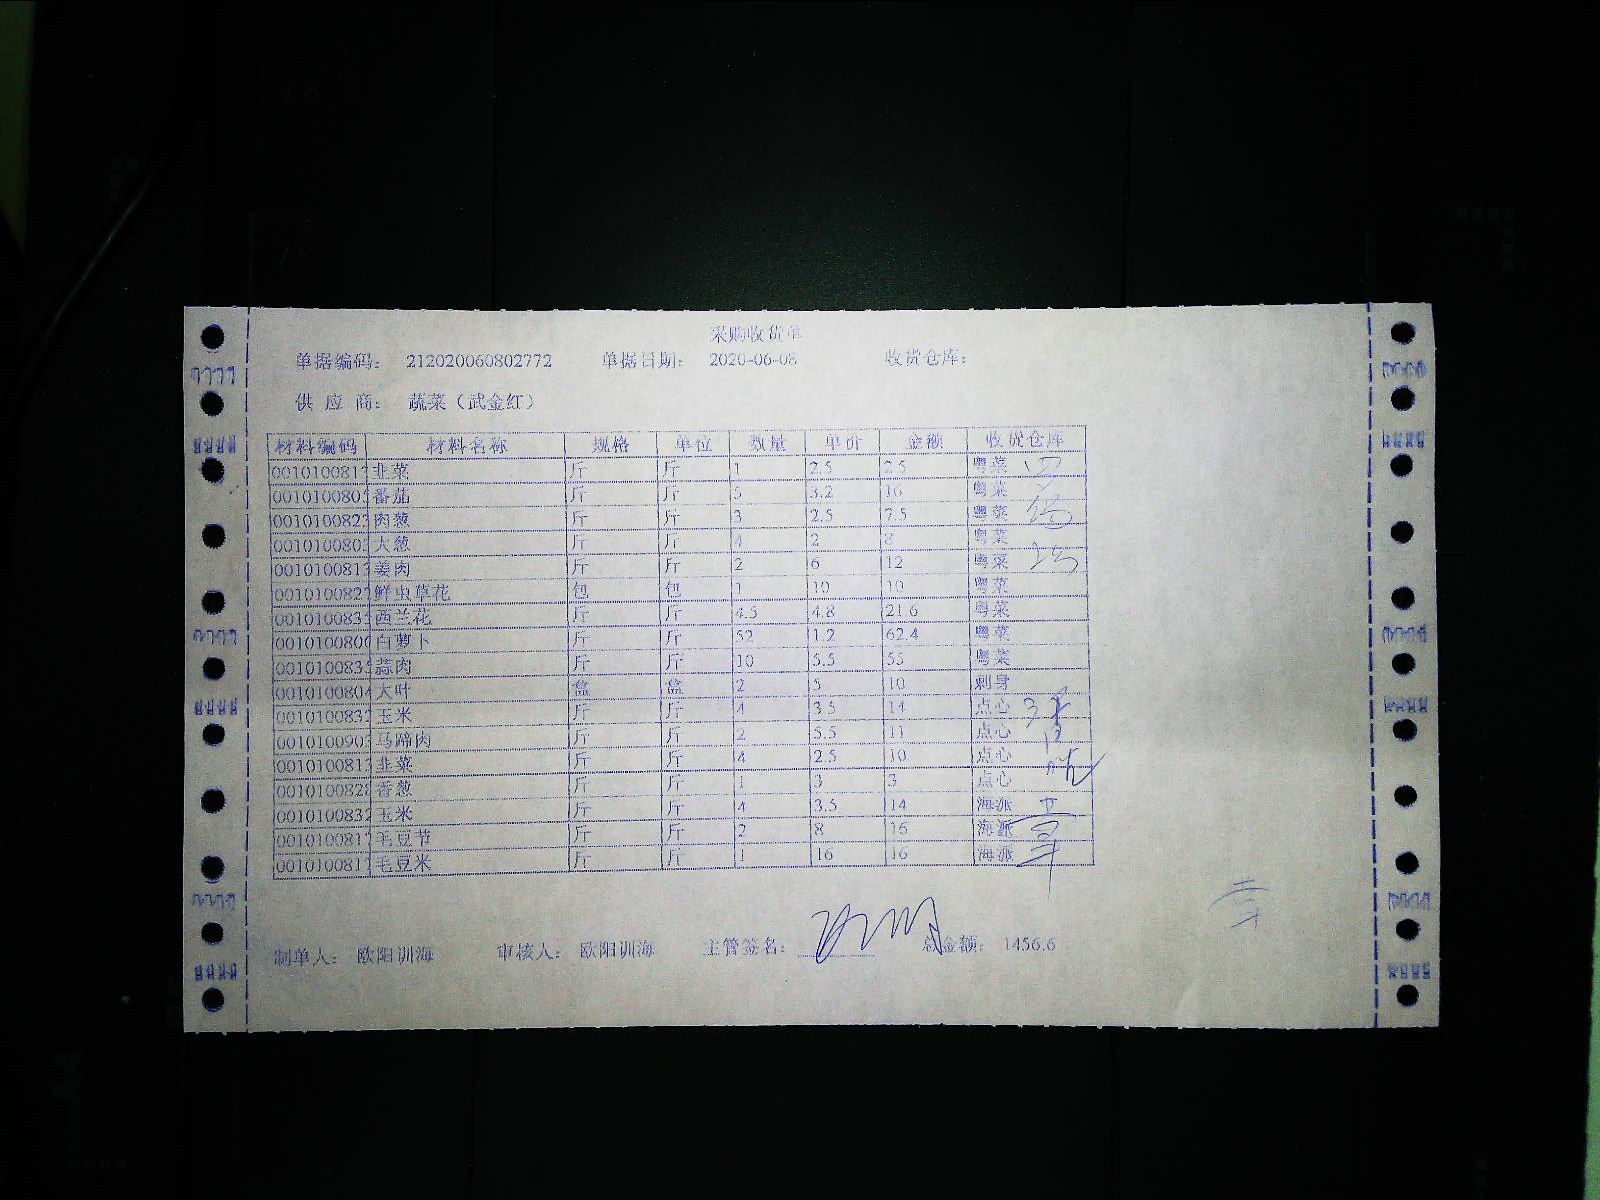 采购收货单
单据编码： 212020060802772 单据日期： 2020-06-08 收货仓库：
供 应 商： 蔬菜（武金红）
材料编码 材料名称 规格 单位 数量 单价 金额 收货仓库
001010081 韭菜 斤 斤 1 2.5 2.5 粤菜
001010080 番茄 斤 斤 5 3.2 16 粤菜
001010082 肉葱 斤 斤 3 2.5 7.5 粤菜
001010080 大葱 斤 斤 4 2 8 粤菜
001010081 姜肉 斤 斤 2 6 12 粤菜
001010082 鲜虫草花 包 包 1 10 10 粤菜
001010083 西兰花 斤 斤 4.5 4.8 21.6 粤菜
001010080 白萝卜 斤 斤 52 1.2 62.4 粤菜
001010083 蒜肉 斤 斤 10 5.5 55 粤菜
001010080 大叶 盒 盒 2 5 10 刺身
001010083 玉米 斤 斤 4 3.5 14 点心
001010090 马蹄肉 斤 斤 2 5.5 11 点心
001010081 韭菜 斤 斤 4 2.5 10 点心
001010082 香葱 斤 斤 1 3 3 点心
001010083 玉米 斤 斤 4 3.5 14 海派
001010081 毛豆节 斤 斤 2 8 16 海派
001010081 毛豆米 斤 斤 1 16 16 海派
制单人： 欧阳训海 审核人： 欧阳训海 主管签名： 总金额： 1456.6